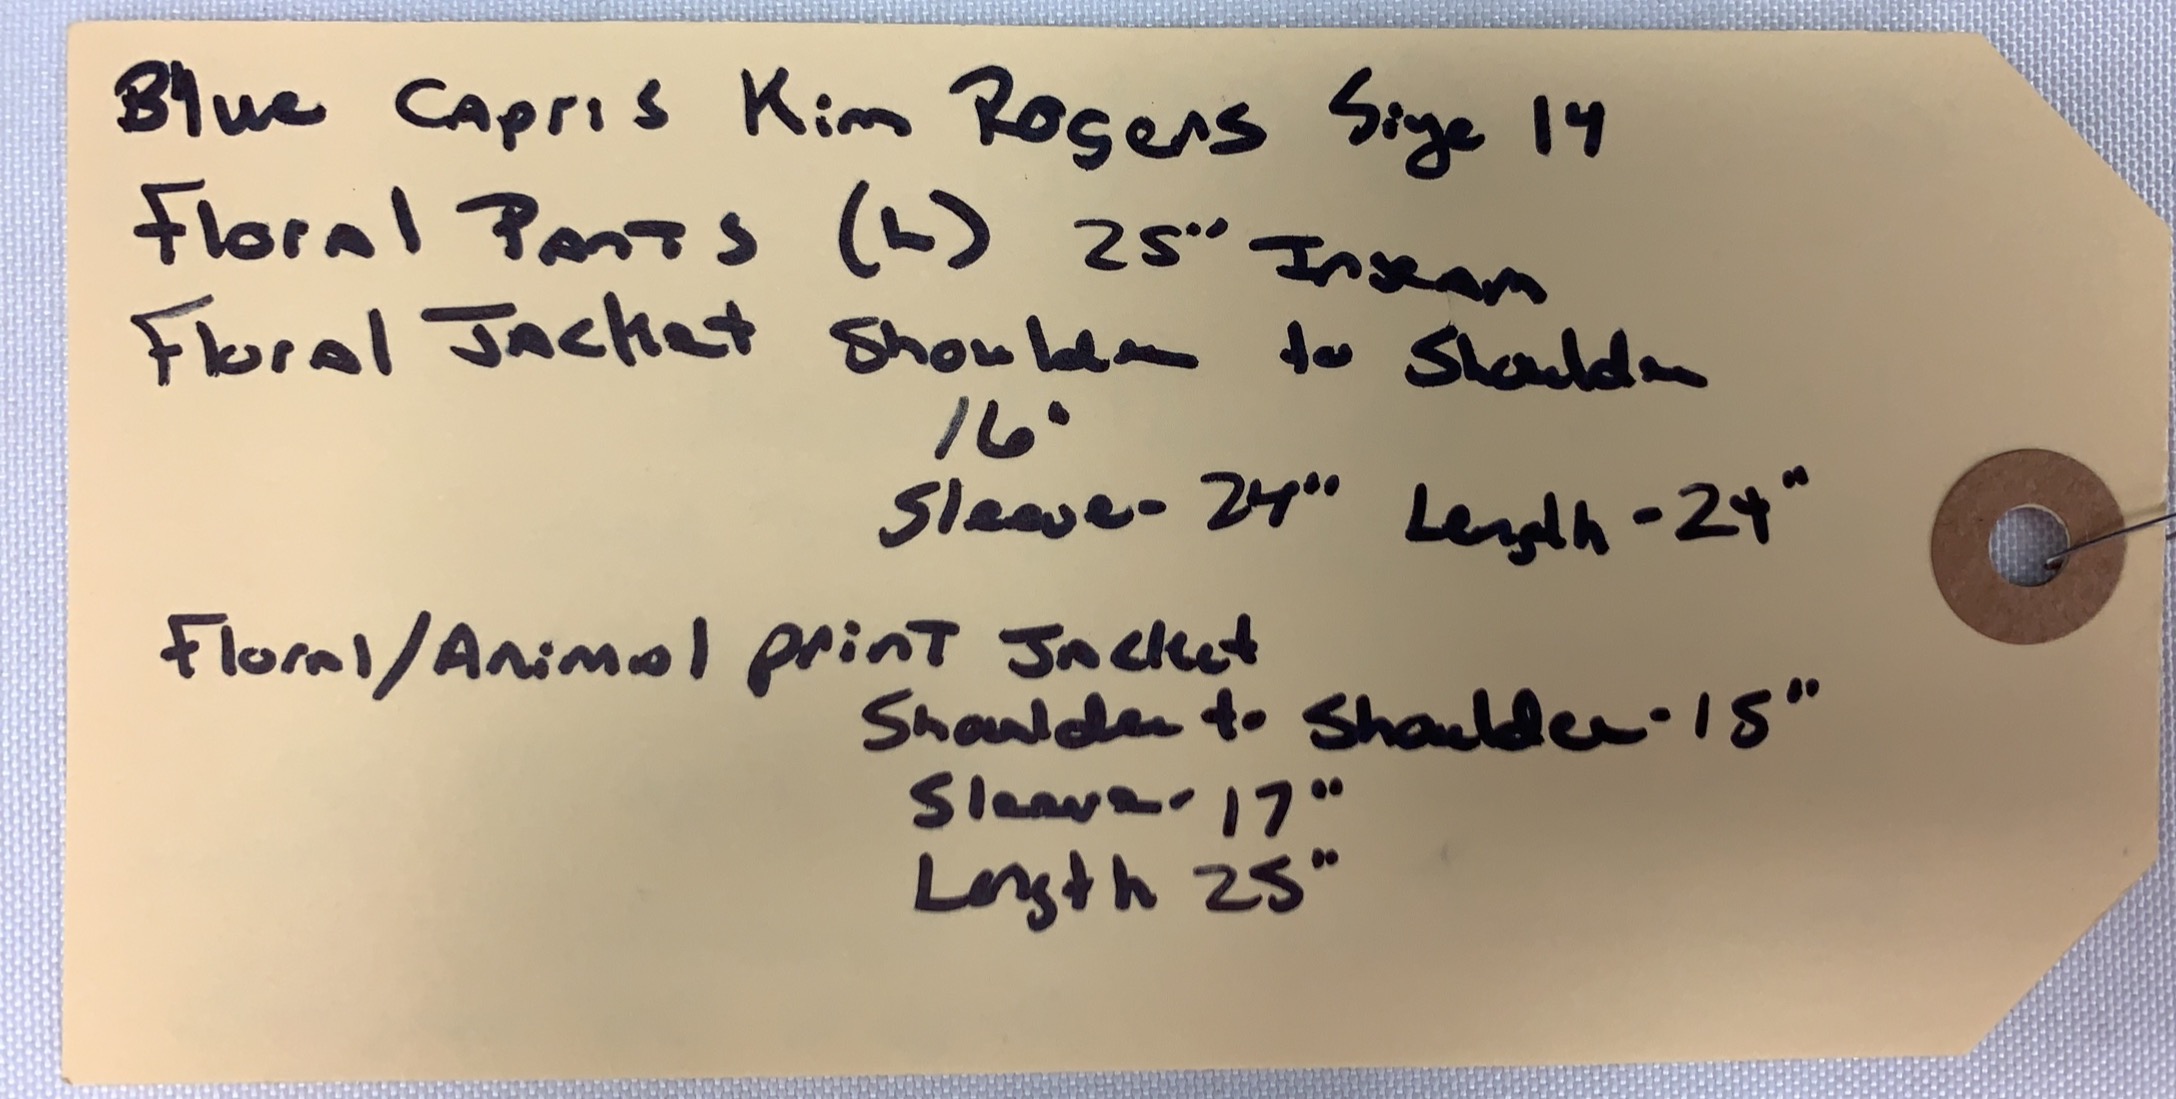 Blue Capris Kim Rogers Size 14
Floral Pants (L) 25" Inseam
Floral Jacket Shoulder to Shoulder
16"
Sleeve- 24" Length - 24"
Floral/Animal print Jacket
Shoulder to Shoulder - 15"
Sleeve- 17"
Length 25"